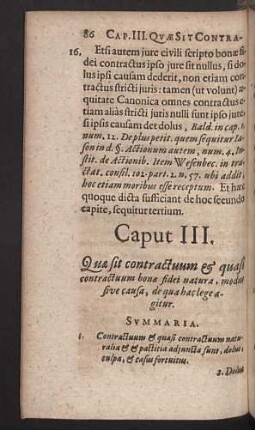 86 CAP. III. QVÆ SIT CONTRA-
16. Etsi autem jure civili scripto bonæ fi
dei contractus ipso jure sit nullus, si do
lus ipsi causam dederit, non etiam con
tractus stricti juris: tamen (ut volunt) æ
quitate Canonica omnes contractus e
tiam aliàs stricti juris nulli sunt ipso jure,
si ipsis causam det dolus, Bald. in cap. 1.
num. 12. De plus petit. quem sequitur Ia-
son in d. §. Actionum autem, num. 4. In-
stit. de Actionib. Item Wesenbec. in tra-
ctat. consil. 102. part. 2. n. 57. ubi addit,
hoc etiam moribus esse receptum. Et hæc
quoque dicta sufficiant de hoc secundo
capite, sequitur tertium.
Caput III.
Quæ sit contractuum & quasi
contractuum bonæ fidei natura, modus
sive causa, de qua hac lege a-
gitur.
SVMMARIA.
1. Contractuum & quasi contractuum natu-
ralia & pactitia adjuncta sunt, dolus,
culpa, & casus fortuitus.
2. Dolus